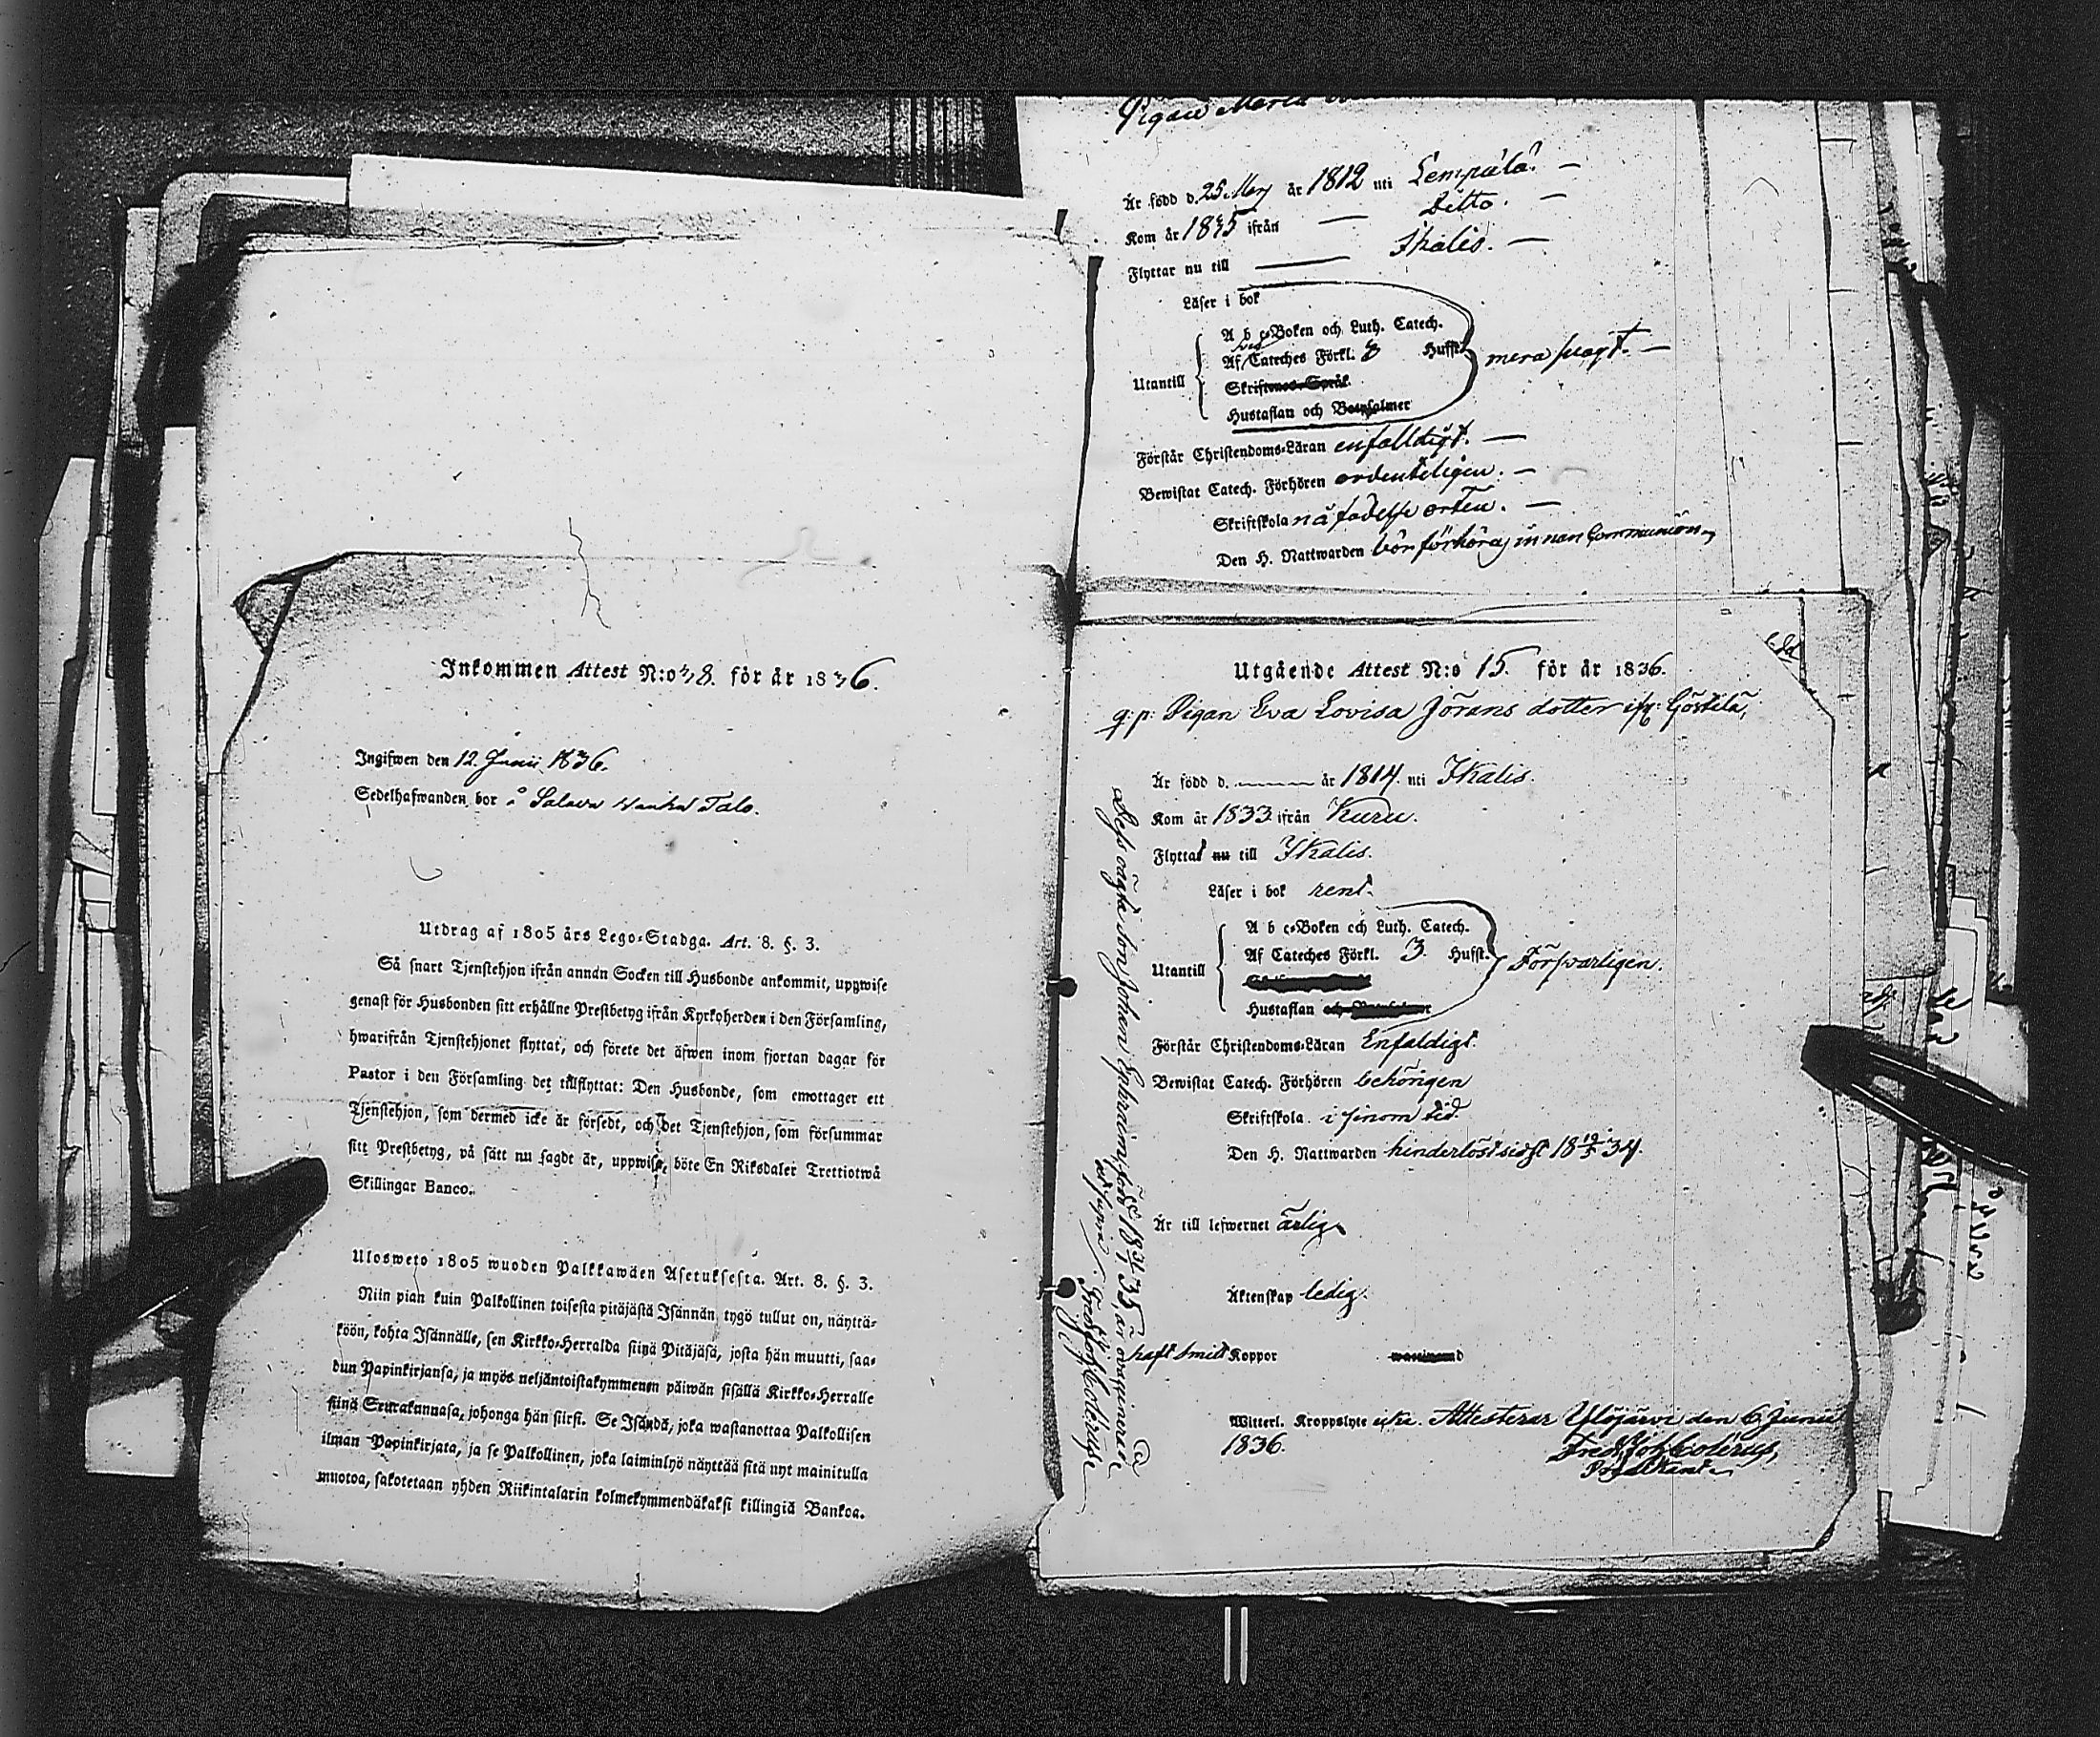 Inkommen Attest N:o 48. för år 1836.
Ingifwen den 12. Junii 1836.
Sedelhafwanden bor å Salava Wanha Talo.
Utdrag af 1805 års Lego-Stadga. Art. 8. §. 3.
Så snart Tjenstehjon ifrån annan Socken till Husbonde ankommit, uppwise
genast för Husbonden sitt erhållne Prestbetyg ifrån Kyrkoherden i den Församling,
hwarifrån Tjenstehjonet flyttat, och förete det äfwen inom fjortan dagar för
Pastor i den Församling det tillflyttat: Den Husbonde, som emottager ett
Tjenstehjon, som dermed icke är försedt, och det Tjenstehjon, som försummar
sitt Prestbetyg, på sätt nu sagdt är, uppwisa, böte En Riksdaler Trettiotwå
Skillingar Banco.
Ulosweto 1805 wuoden Palkkawäen Asetuksesta. Art. 8. §. 3.
Niin pian kuin Palkollinen toisesta pitäjästä Isännän tygö tullut on, näyttä-
köön, kohta Isännälle, sen Kirkko-Herralda siinä Pitäjäsä, josta hän muutti, saa-
dun Papinkirjansa, ja myös neljäntoistakymmenen päiwän sisällä Kirkko-Herralle
siinä Seurakunnasa, johonga hän siirsi. Se Isändä, joka wastanottaa Palkollisen
ilman Papinkirjata, ja se Palkollinen, joka laiminlyö näyttää sitä nyt mainitulla
muotoa, sakotetaan yhden Riikintalarin kolmekymmendäkaksi killingiä Bankoa.
Pigan Maria
Är född d. 25 Maij år 1812 uti Lempälä. —
Kom år 1835 ifrån — Ditto. —
Flyttar nu till — Ikalis. —
Läser i bok
Utantill
A b c-Boken och Luth. Catech.
Af Cateches Förkl. 3 Hufst.
Skriftenes Språk
Hustaflan och Botpsalmer
mera swagt. —
Förstår Christendoms-Läran enfalldigt. —
Bewistat Catech. Förhören ordenteligen. —
Skriftskola på födelse orten. —
Den H. Nattwarden bör förhöras innan Communion
Utgående Attest N:o 15. för år 1836.
q: p: Pigan Eva Lovisa Jörans dotter ifr: Göstilä,
Är född d. — år 1814. uti Ikalis.
Kom år 1833 ifrån Kuru.
Flyttat nu till Ikalis.
Läser i bok rent.
Utantill
A b c-Boken och Luth. Catech.
Af Cateches Förkl. 3. Hufst.
Hustaflan och
Förswarligen.
Förstår Christendoms-Läran Enfaldigt.
Bewistat Catech. Förhören behörigen
Skriftskola i sinom tid
Den H. Nattwarden hinderlöst sidst 18 19/5 34.
Är till lefwernet ärlig
Äktenskap ledig.
haft Koppor
Witterl. Kroppslyte icke. Attesterar Ylöjärvi den 6 Junii
1836.
Dess oägta son Johan Ephraim, född 18 31/7 35, är ovaccinerad